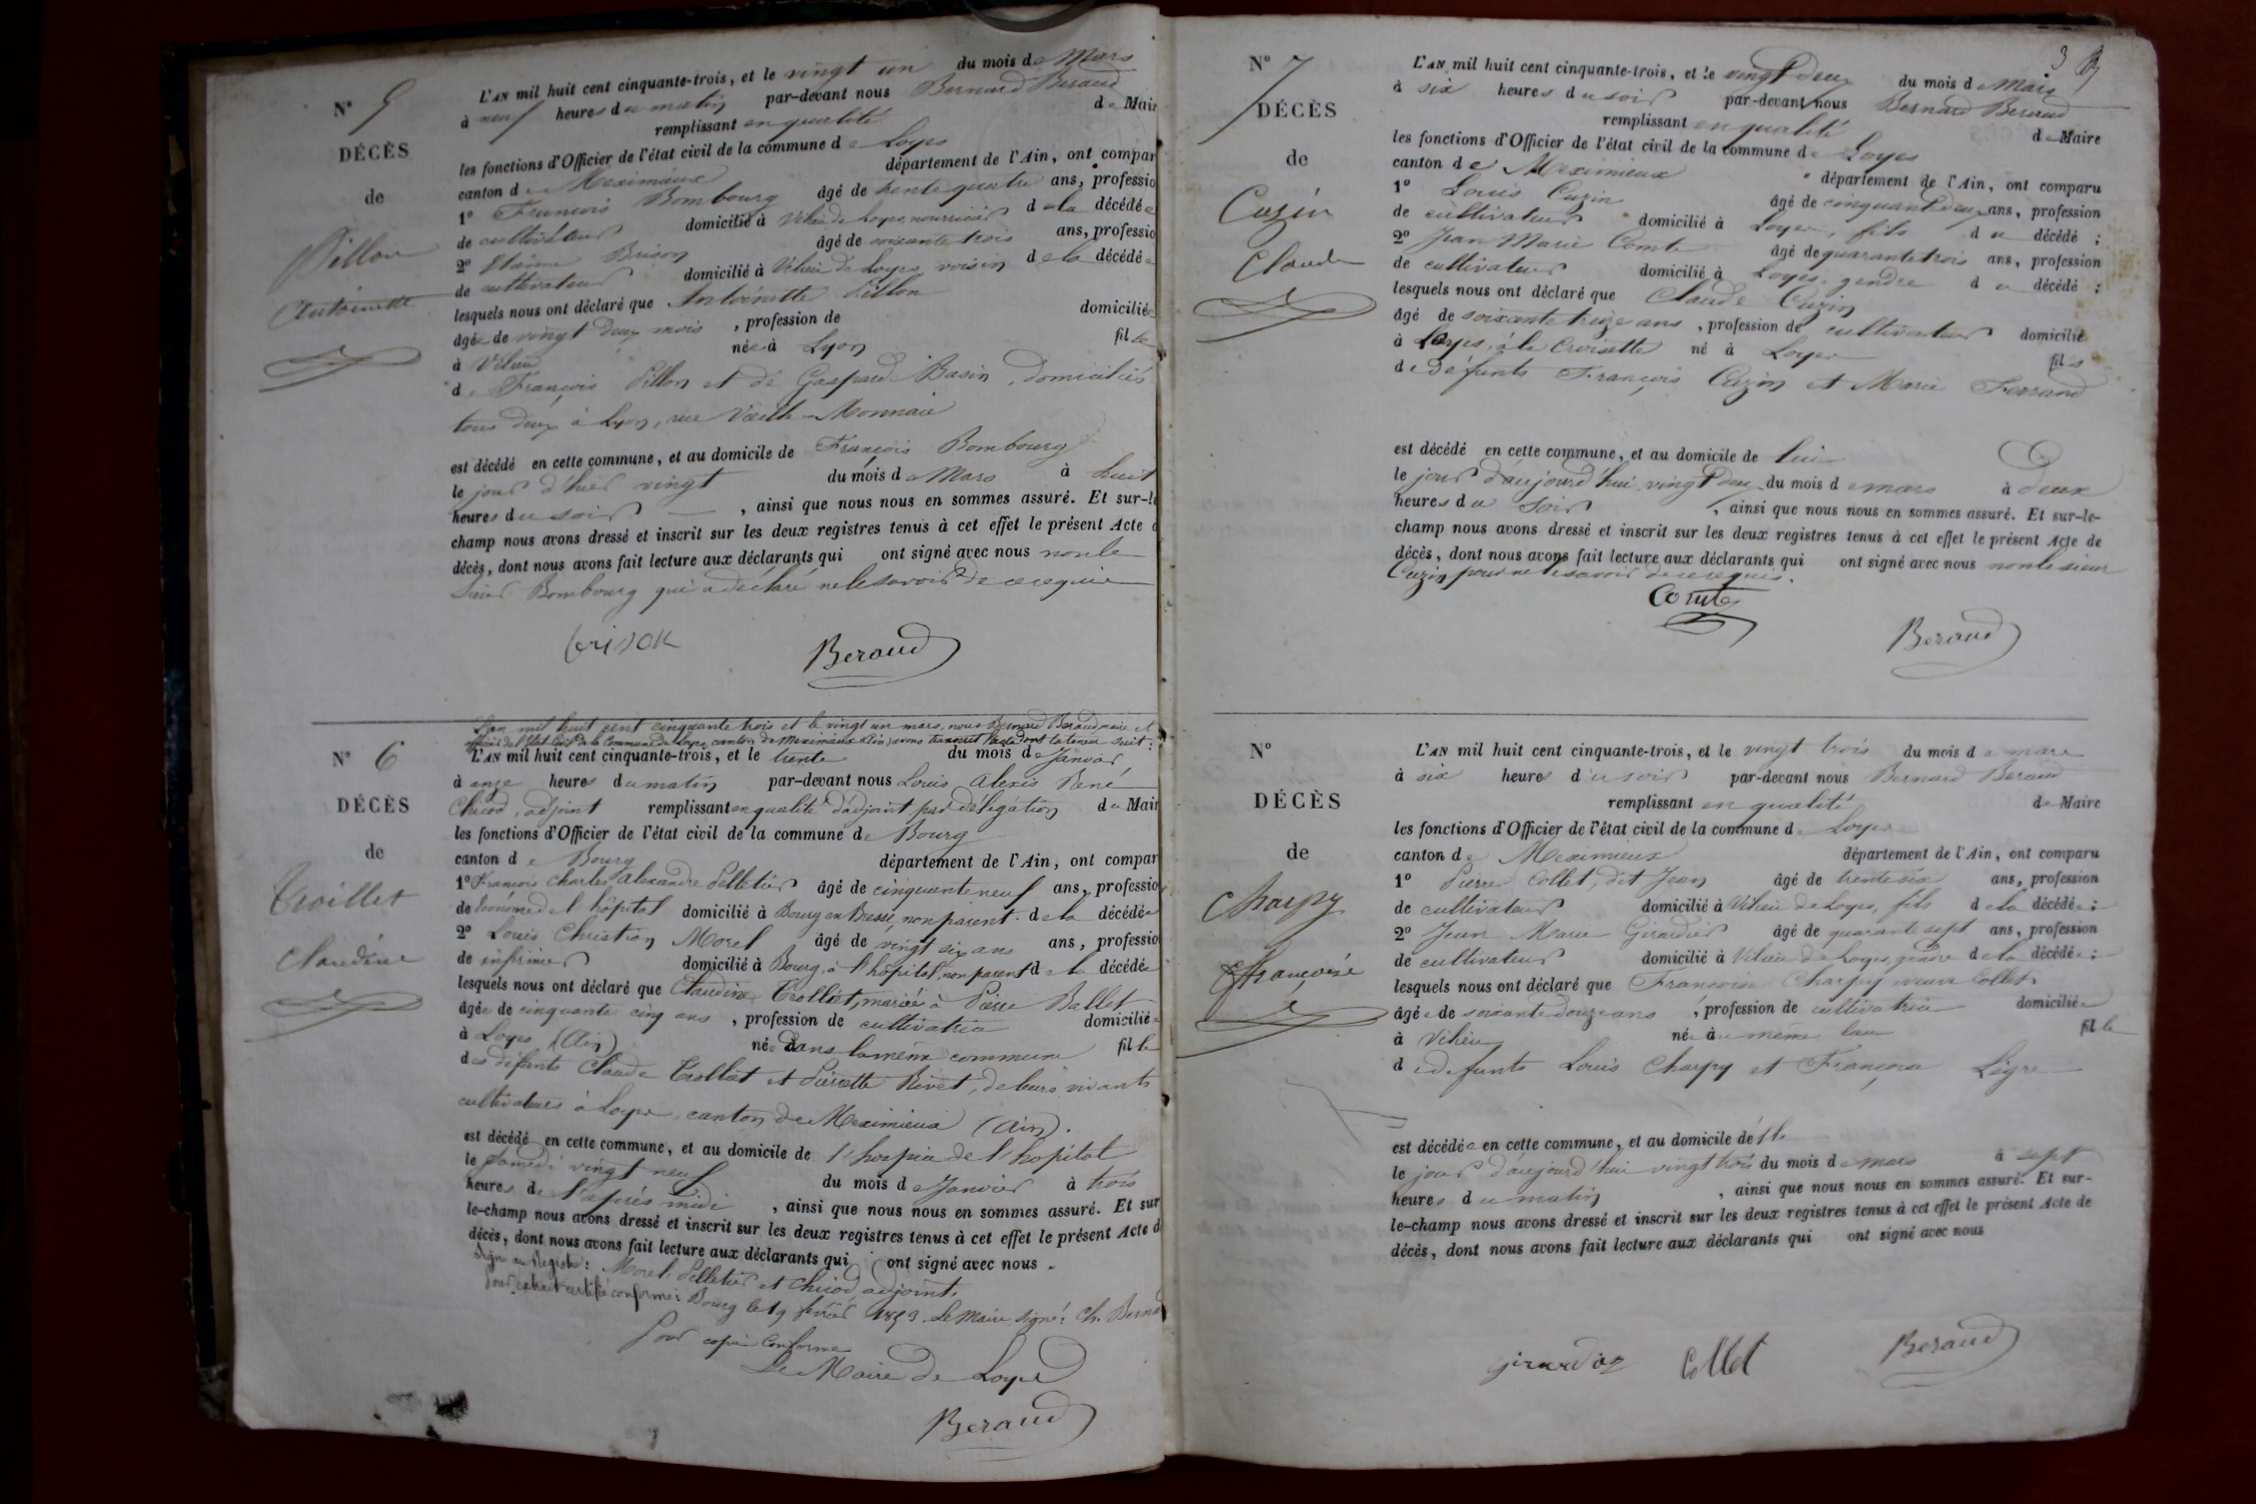 N° 5
DÉCÈS
de
Pillon
Antoinette
L'AN mil huit cent cinquante-trois, et le vingt un du mois de Mars
à neuf heures du matin par-devant nous Bernard Beraud
remplissant en qualité de Mair
les fonctions d'Officier de l'état civil de la commune de Loyes
canton de Meximieux département de l'Ain, ont compar
1° François Bombourg âgé de trente quatre ans, professio
de cultivateur domicilié à Vilieu de Loyes, nourricier de la décédée
2° Brison âgé de soixante trois ans, professio
de cultivateur domicilié à Vilieu de Loyes, voisin de la décédée
lesquels nous ont déclaré que Antoinette Pillon
âgée de vingt deux mois , profession de domiciliée
à Vilieu née à Lyon fille
de François Pillon et de Gasparde Basin, domiciliés
tous deux à Lyon, rue Vieille-Monnaie
est décédé en cette commune, et au domicile de François Bombourg
le jour d'hier vingt du mois de Mars à huit
heures du soir — , ainsi que nous nous en sommes assuré. Et sur-le
champ nous avons dressé et inscrit sur les deux registres tenus à cet effet le présent Acte d
décès, dont nous avons fait lecture aux déclarants qui ont signé avec nous non le
Sieur Bombourg qui a déclaré ne le savoir de ce requis
brison Beraud
L'an mil huit cent cinquante trois et le vingt un mars, nous Bernard Beraud maire et
officier de l'Etat Civil de la Commune de Loyes, canton de Meximieux (Ain) avons transcrit l'acte dont la teneur suit :
N° 6
DÉCÈS
de
Troillet
Claudine
L'AN mil huit cent cinquante-trois, et le trente du mois de Janvier
à onze heures du matin par-devant nous Louis Alexis René
Chicod, adjoint remplissant en qualité d'adjoint par délégation du Mair
les fonctions d'Officier de l'état civil de la commune de Bourg
canton de Bourg département de l'Ain, ont compar
1° François Charles Alexandre Pelletier âgé de cinquante neuf ans, professio
de Econome de l'hôpital domicilié à Bourg en Bresse, non parent de la décédée
2° Louis Christian Morel âgé de vingt six ans ans, professio
de infirmier domicilié à Bourg, à l'hôpital, non parent de la décédée
lesquels nous ont déclaré que Claudine Trolliet, mariée à Pierre Ballet
âgée de cinquante cinq ans , profession de cultivatrice domiciliée
à Loyes (Ain) née dans la même commune fille
des défunts Claude Trolliet et Pierrette Rivet, de leurs vivants
cultivateurs à Loyes, canton de Meximieux (Ain).
est décédé en cette commune, et au domicile de l'hospice de l'hopital
le samedi vingt neuf du mois de Janvier à trois
heures de l'après midi , ainsi que nous nous en sommes assuré. Et sur
le-champ nous avons dressé et inscrit sur les deux registres tenus à cet effet le présent Acte d
décès, dont nous avons fait lecture aux déclarants qui ont signé avec nous.
Signé au Registre : Morel, Pelletier et Chicod, adjoint.
Pour extrait certifié conforme : Bourg le 19 février 1853. Le Maire, signé : Ch. Bernard
Pour copie Conforme
Le Maire de Loyes
Beraud
3
N° 7
DÉCÈS
de
Cuzin
Claude
L'AN mil huit cent cinquante-trois, et le vingt deux du mois de Mars
à six heures du soir par-devant nous Bernard Beraud
remplissant en qualité de Maire
les fonctions d'Officier de l'état civil de la commune de Loyes
canton de Meximieux département de l'Ain, ont comparu
1° Louis Cuzin âgé de cinquante deux ans, profession
de cultivateur domicilié à Loyes, fils du décédé ;
2° Jean Marie Comte âgé de quarante trois ans, profession
de cultivateur domicilié à Loyes, gendre du décédé ;
lesquels nous ont déclaré que Claude Cuzin
âgé de soixante treize ans , profession de cultivateur domicilié
à Loyes, à la Croisette né à Loyes fils
de défunts François Cuzin et Marie Ferrand
est décédé en cette commune, et au domicile de lui
le jour d'aujourd'hui vingt deux du mois de mars à deux
heures du soir , ainsi que nous nous en sommes assuré. Et sur-le-
champ nous avons dressé et inscrit sur les deux registres tenus à cet effet le présent Acte de
décès, dont nous avons fait lecture aux déclarants qui ont signé avec nous non le sieur
Cuzin pour ne le savoir de ce requis.
Comte
Beraud
N°
DÉCÈS
de
Charpy
Françoise
L'AN mil huit cent cinquante-trois, et le vingt trois du mois de mars
à six heures du soir par-devant nous Bernard Beraud
remplissant en qualité de Maire
les fonctions d'Officier de l'état civil de la commune de Loyes
canton de Meximieux département de l'Ain, ont comparu
1° Pierre Collet, dit Jean âgé de trente six ans, profession
de cultivateur domicilié à Vilieu de Loyes, fils de la décédée ;
2° Jean Marie Girardier âgé de quarante sept ans, profession
de cultivateur domicilié à Vilieu de Loyes, gendre de la décédée ;
lesquels nous ont déclaré que Françoise Charpy veuve Collet
âgée de soixante douze ans , profession de cultivatrice domiciliée
à Vilieu née au même lieu fille
de défunts Louis Charpy et Françoise Légre
est décédée en cette commune, et au domicile d'elle
le jour d'aujourd'hui vingt trois du mois de mars à sept
heures du matin , ainsi que nous nous en sommes assuré. Et sur-
le-champ nous avons dressé et inscrit sur les deux registres tenus à cet effet le présent Acte de
décès, dont nous avons fait lecture aux déclarants qui ont signé avec nous
Collet Beraud